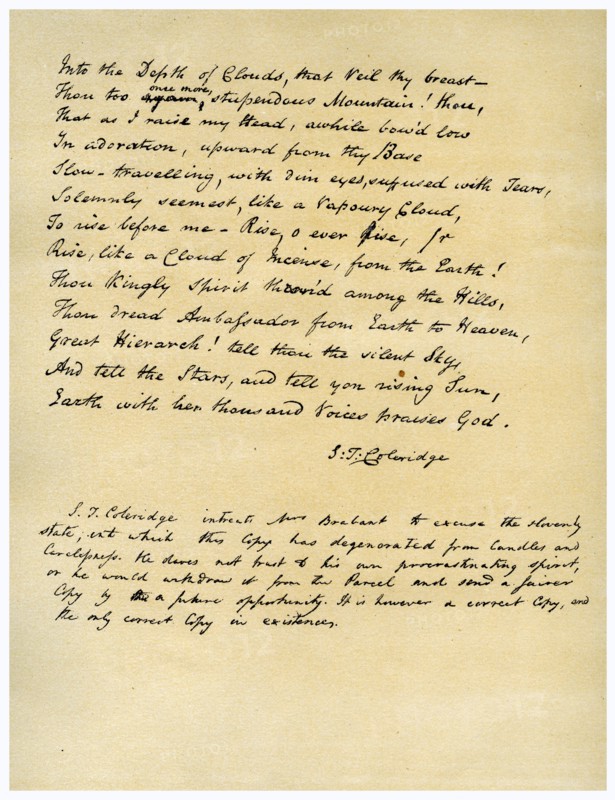 Into the Depth of Clouds, that Veil thy breast—
Thou too again, once more, stupendous Mountain! thou,
That as I raise my Head, awhile bow'd low
In adoration, upward from thy Base
Slow-travelling, with dim eyes suffused with Tears,
Solemnly seemest, like a Vapoury Cloud,
To rise before me — Rise, o ever Rise,
Rise, like a Cloud of Incense, from the Earth!
Thou Kingly Spirit thron'd among the Hills,
Thou dread Ambassador from Earth to Heaven,
Great Hierarch! tell thou the silent Sky,
And tell the Stars, and tell yon rising Sun,
Earth with her thousand Voices praises God.
S. T. Coleridge
S. T. Coleridge intreats Mrs Brabant to excuse the slovenly
state, into which this Copy has degenerated from Candles and
Carelessness. He dares not trust to his own procrastinating spirit,
or he would withdraw it from the Parcel and send a fairer
Copy by a future opportunity. It is however a correct Copy, and
the only correct Copy in existence.